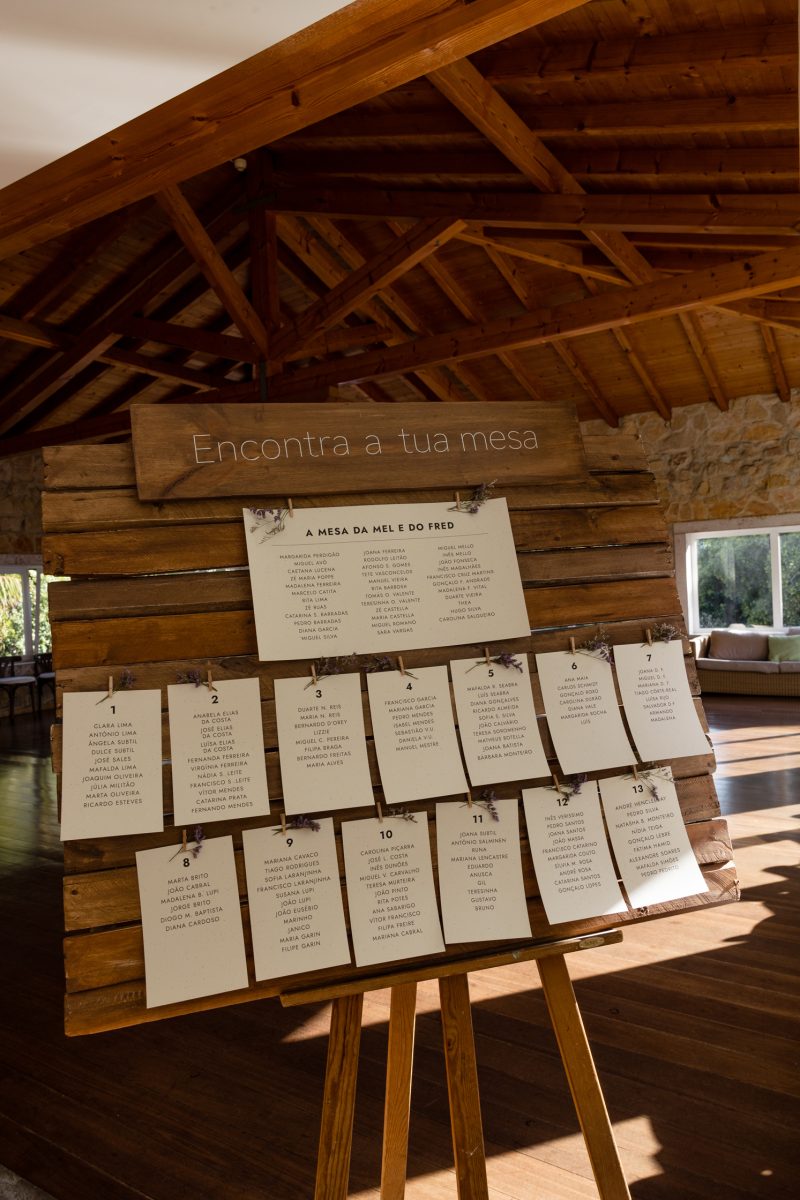 Encontra a tua mesa
A MESA DA MEL E DO FRED
MARGARIDA PERDIGÃO
MIGUEL AVÔ
CAETANA LUCENA
ZÉ MARIA POPPE
MADALENA FERREIRA
MARCELO CATITA
RITA LIMA
ZÉ RUAS
CATARINA S. BARRADAS
PEDRO BARRADAS
DIANA GARCIA
MIGUEL SILVA
JOANA FERREIRA
RODOLFO LEITÃO
AFONSO S. GOMES
TETE VASCONCELOS
MANUEL VIEIRA
RITA BARBOSA
TOMÁS O. VALENTE
TERESINHA O. VALENTE
ZÉ CASTELLA
MARIA CASTELLA
MIGUEL ROMANO
SARA VARGAS
MIGUEL MELLO
INÊS MELLO
JOÃO FONSECA
INÊS MAGALHÃES
FRANCISCO CRUZ MARTINS
GONÇALO F. ANDRADE
MADALENA F. VITAL
DUARTE VIEIRA
THEA
HUGO SILVA
CAROLINA SALGUEIRO
1
CLARA LIMA
ANTÓNIO LIMA
ÂNGELA SUBTIL
DULCE SUBTIL
JOSÉ SALES
MAFALDA LIMA
JOAQUIM OLIVEIRA
JÚLIA MILITÃO
MARTA OLIVEIRA
RICARDO ESTEVES
2
ANABELA ELIAS
DA COSTA
JOSÉ ELIAS
DA COSTA
LUÍSA ELIAS
DA COSTA
FERNANDA FERREIRA
VIRGÍNIA FERREIRA
NÁDIA S. LEITE
FRANCISCO S. LEITE
VÍTOR MENDES
CATARINA PRATA
FERNANDO MENDES
3
DUARTE N. REIS
MARIA N. REIS
BERNARDO D'OREY
LIZZIE
MIGUEL C. PEREIRA
FILIPA BRAGA
BERNARDO FREITAS
MARIA ALVES
4
FRANCISCO GARCIA
MARIANA GARCIA
PEDRO MENDES
ISABEL MENDES
SEBASTIÃO V.U.
DANIELA V.U.
MANUEL MESTRE
5
MAFALDA R. SEABRA
LUÍS SEABRA
DIANA GONÇALVES
RICARDO ALMEIDA
SOFIA S. SILVA
JOÃO CALVÁRIO
TERESA SOROMENHO
MATHEUS BOTELLA
JOANA BATISTA
BÁRBARA MONTEIRO
6
ANA MAIA
CARLOS SCHMIDT
GONÇALO ROXO
CAROLINA ROXO
DIANA VALE
MARGARIDA ROCHA
LUÍS
7
JOANA D. F.
MARIANA D. F.
TIAGO CÔRTE-REAL
LUÍS RIJO
SALVADOR D.F
ARMANDO
MADALENA
8
MARTA BRITO
JOÃO CABRAL
MADALENA B. LUPI
JORGE BRITO
DIOGO M. BAPTISTA
DIANA CARDOSO
9
MARIANA CAVACO
TIAGO RODRIGUES
SOFIA LARANJINHA
FRANCISCO LARANJINHA
SUSANA LUPI
JOÃO LUPI
JOÃO EUSÉBIO
MARINHO
JANICO
MARIA GARIN
FILIPE GARIN
10
CAROLINA PIÇARRA
JOSÉ L. COSTA
INÊS DUNÕES
MIGUEL V. CARVALHO
TERESA MURTEIRA
JOÃO PINTO
RITA POTES
ANA SABARIGO
VÍTOR FRANCISCO
FILIPA FREIRE
MARIANA CABRAL
11
JOANA SUBTIL
ANTÓNIO SALMINÉN
RUNA
MARIANA LENCASTRE
EDUARDO
ANUSCA
GIL
TERESINHA
GUSTAVO
BRUNO
12
INÊS VERISSIMO
PEDRO SANTOS
JOANA SANTOS
JOÃO MASSA
FRANCISCO CATARINO
MARGARIDA COUTO
SÍLVIA M. ROSA
ANDRÉ ROSA
CATARINA SANTOS
GONÇALO LOPES
13
ANDRÉ HENCLEWAY
PEDRO SILVA
NATASHA S. MONTEIRO
NÍDIA TEIGA
GONÇALO LEBRE
FÁTIMA HAMID
ALEXANDRE SOARES
MAFALDA SIMÕES
PEDRO PEDRITO